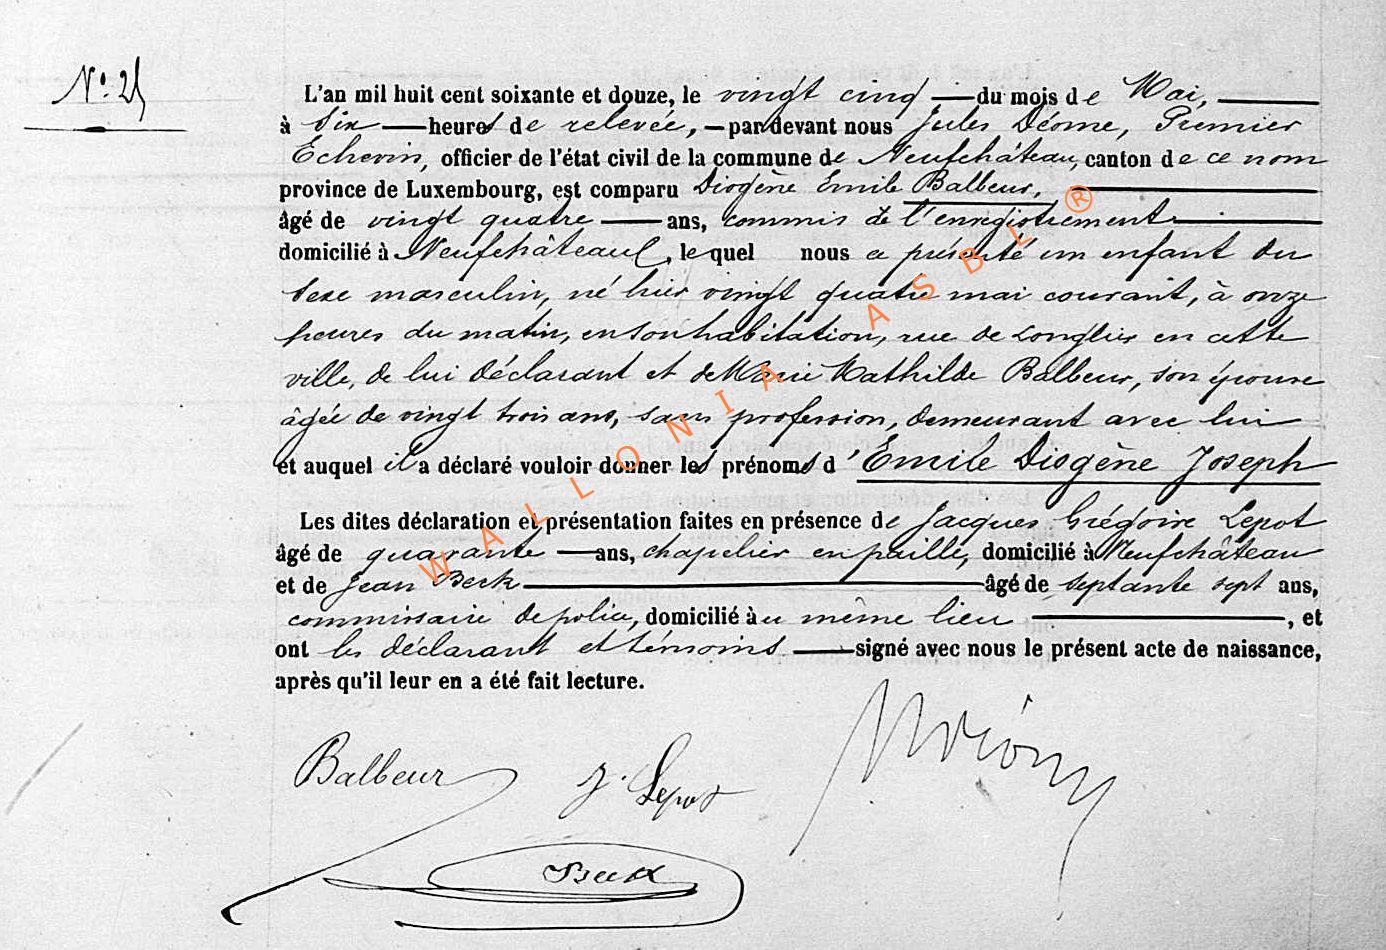 N° 25
L'an mil huit cent soixante et douze, le vingt cinq du mois de Mai,
à Six heures de relevée, par devant nous Jules Déome, Premier
Echevin, officier de l'état civil de la commune de Neufchâteau, canton de ce nom
province de Luxembourg, est comparu Diogène Emile Balbeur,
âgé de vingt quatre ans, commis de l'enregistrement
domicilié à Neufchâteau, le quel nous a présenté un enfant du
Sexe masculin, né hier vingt quatre mai courant, à onze
heures du matin, en son habitation, rue de Longlier en cette
ville, de lui déclarant et de Marie Mathilde Balbeur, son épouse
âgée de vingt trois ans, sans profession, demeurant avec lui
et auquel il a déclaré vouloir donner les prénoms d'Emile Diogène Joseph
Les dites déclaration et présentation faites en présence de Jacques Grégoire Lepot
âgé de quarante ans, chapelier en paille, domicilié à Neufchâteau
et de Jean Beck âgé de septante sept ans,
commissaire de police, domicilié au même lieu , et
ont les déclarant et témoins signé avec nous le présent acte de naissance,
après qu'il leur en a été fait lecture.
Balbeur J. Lepot
Beck
WALLONIA ASBL ®